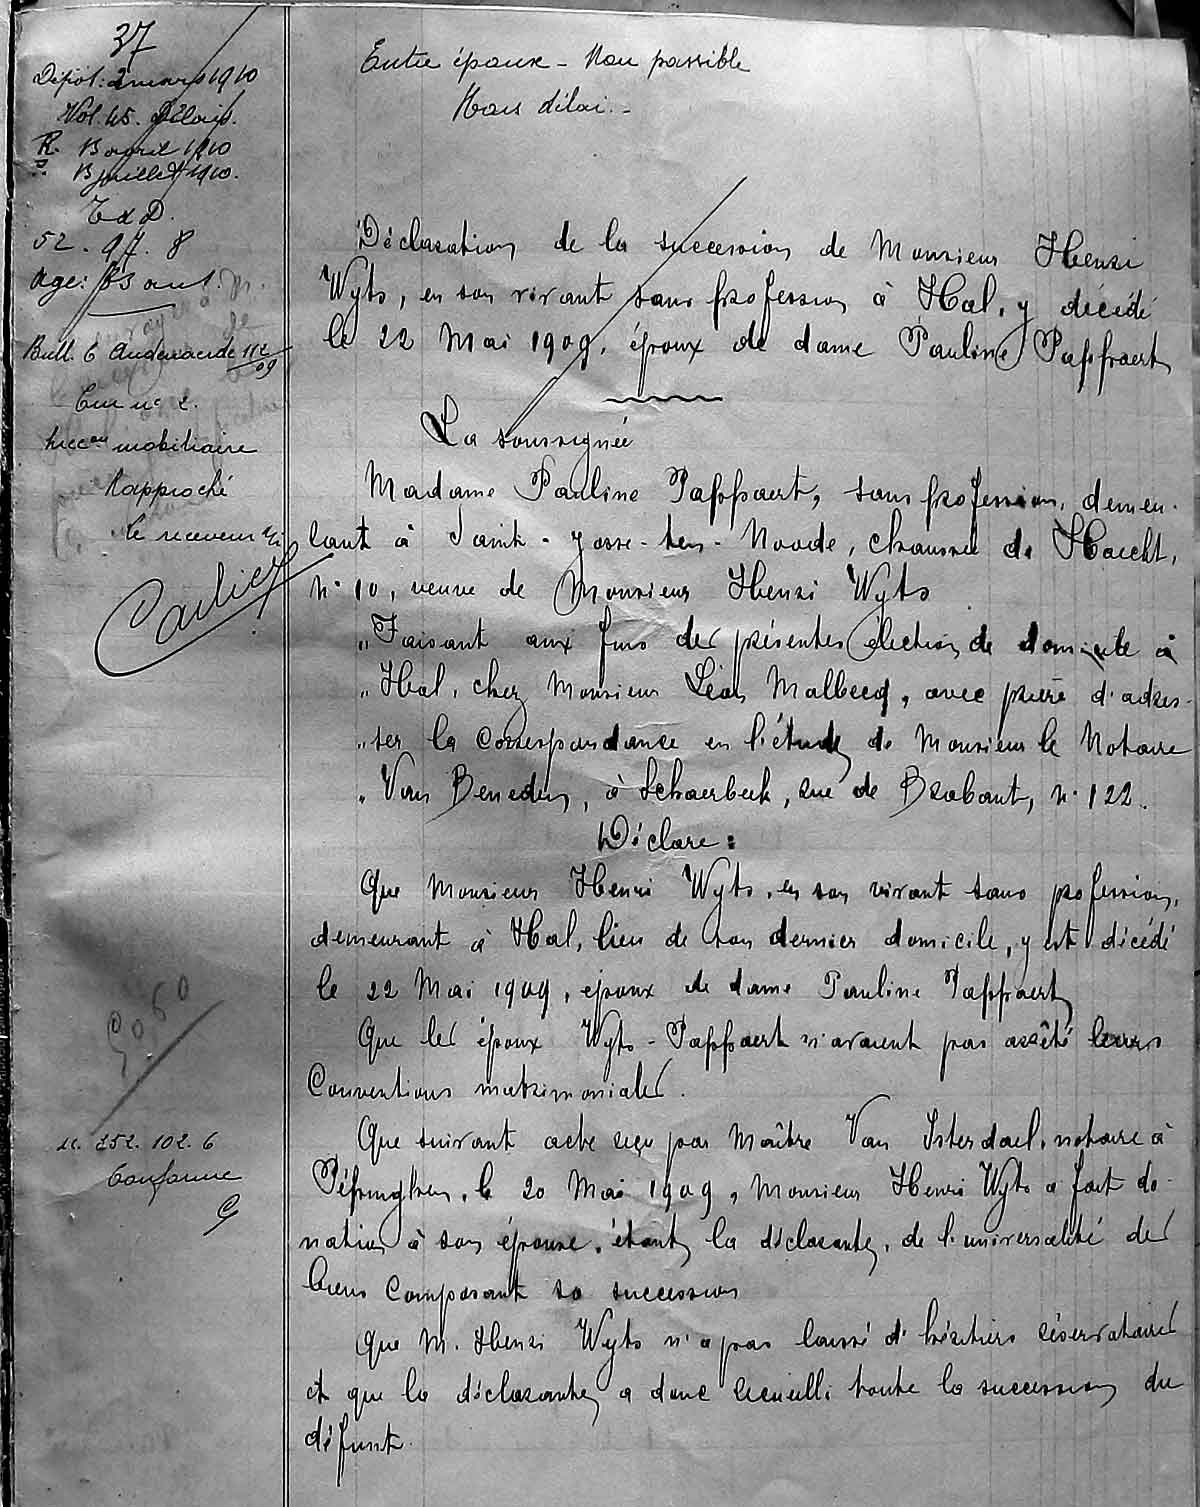 37
Dépôt: 2 mars 1910
Vol. 45. Délais.
R. 13 avril 1910
13 juillet 1910.
T d D.
52. 97. 8
Age: 83 ans.
Bull. 6 Audenaerde 112/09
Cm n° 2.
Succon mobiliaire
Rapproché
Le receveur
Carlier
9060
R. 252. 102. 6
Conforme
G
Entre époux - Non passible
Hors délai. -
Déclaration de la succession de Monsieur Henri
Wyts, en son vivant sans profession à Hal, y décédé
le 22 Mai 1909, époux de dame Pauline Pappaert
La soussignée
Madame Pauline Pappaert, sans profession, demeu-
rant à Saint-Josse-ten-Noode, chaussée de Haecht,
n° 10, veuve de Monsieur Henri Wyts
"Faisant aux fins des présentes élection de domicile à
"Hal, chez Monsieur Léon Malbecq, avec prière d'adres-
"ser la correspondance en l'étude de Monsieur le Notaire
"Van Beneden, à Schaerbeek, rue de Brabant, n° 122.
Déclare:
Que Monsieur Henri Wyts, en son vivant sans profession,
demeurant à Hal, lieu de son dernier domicile, y est décédé
le 22 Mai 1909, époux de dame Pauline Pappaert
Que les époux Wyts-Pappaert n'avaient pas arrêté leurs
Conventions matrimoniales.
Que suivant acte reçu par Maître Van Isterdael, notaire à
Pépinghen, le 20 Mai 1909, Monsieur Henri Wyts a fait do-
nation à son épouse, étant la déclarante, de l'universalité des
biens composant sa succession
Que M. Henri Wyts n'a pas laissé d'héritiers réservataires
et que la déclarante a donc recueilli toute la succession du
défunt.